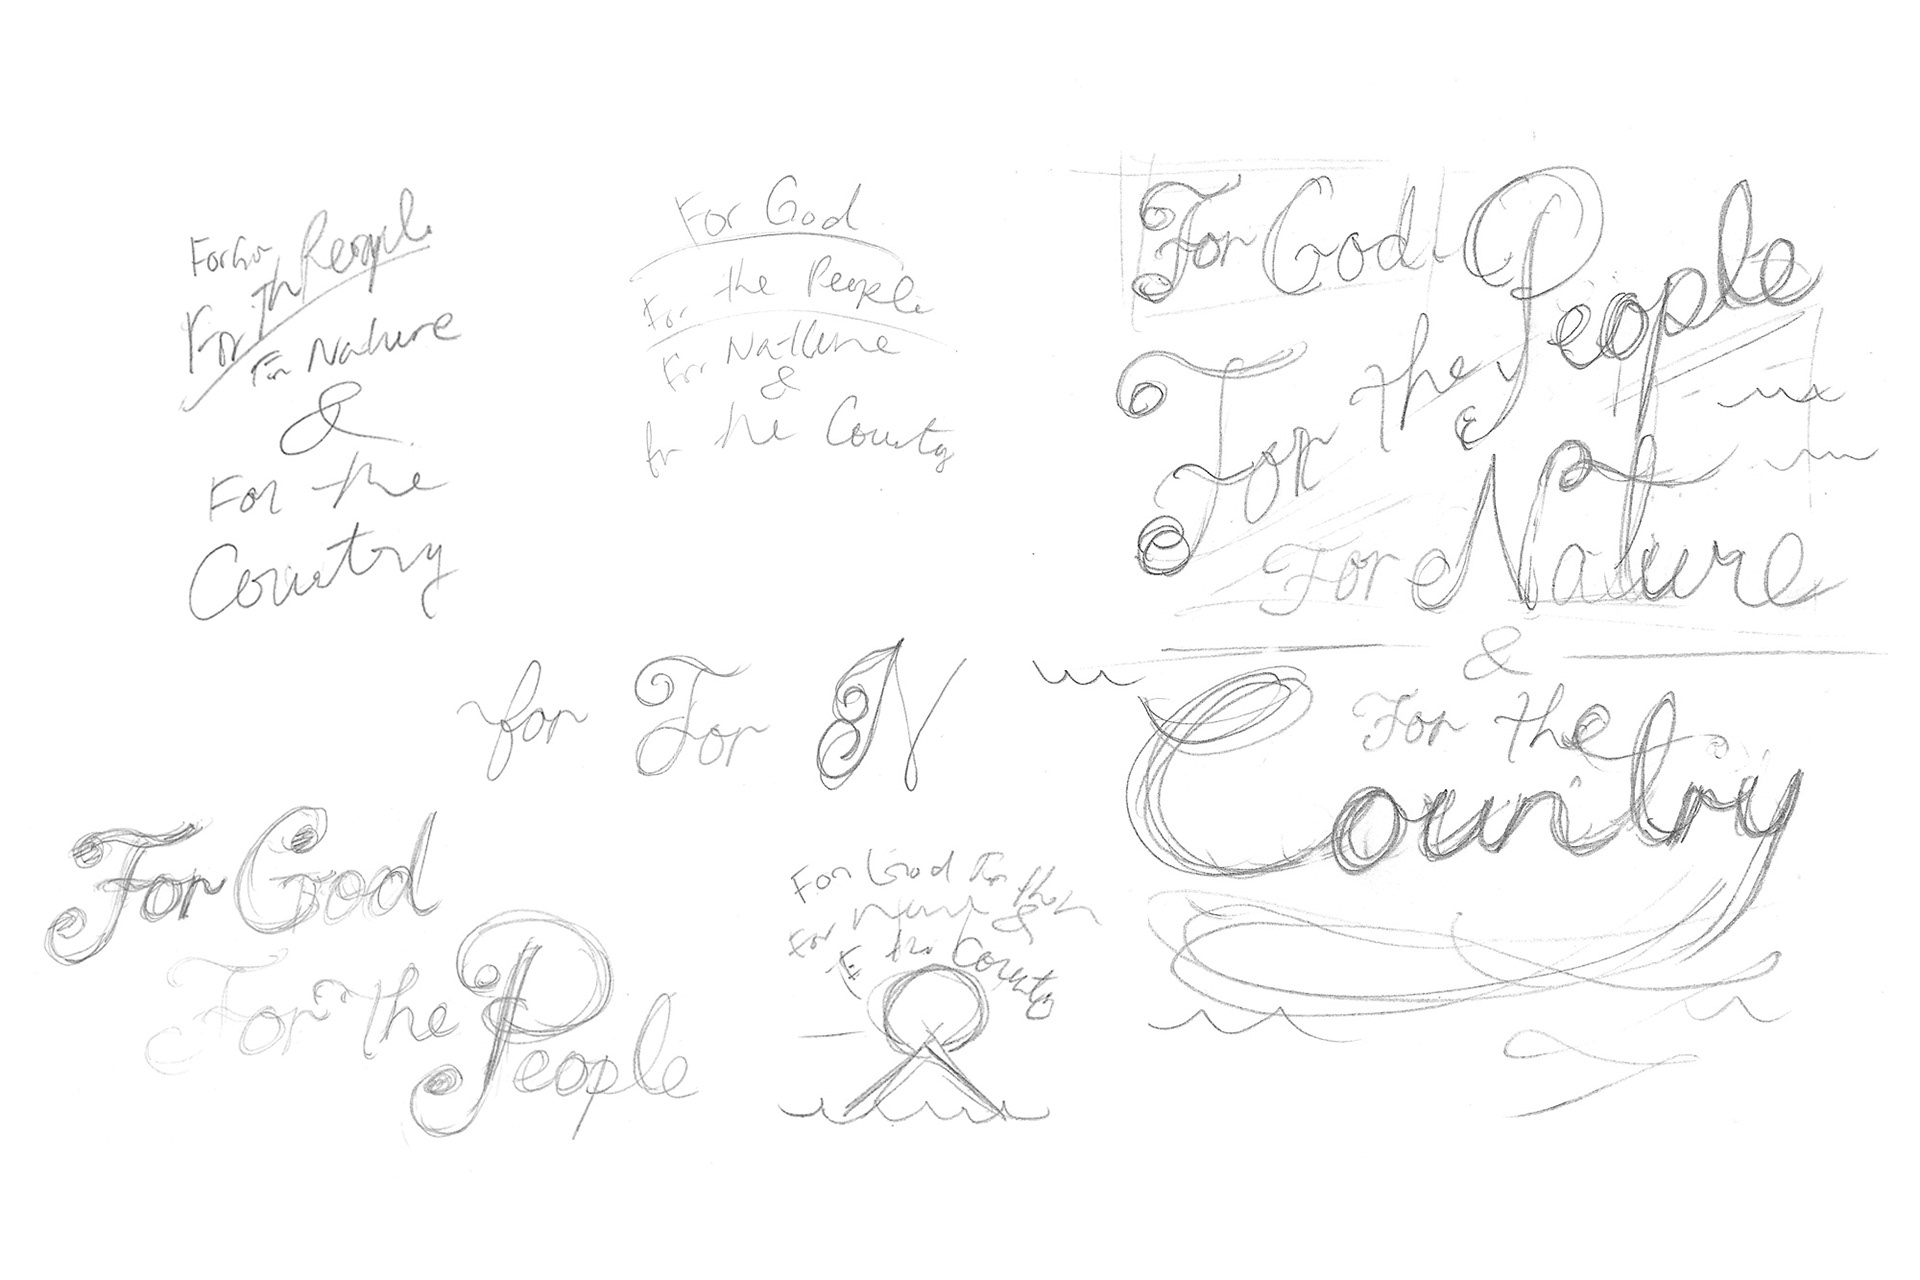 For Go
For Th People
For Nature
&
For the
Country
For God
For the People
For Nature
&
for the Country
For God
People
For the
For Nature
&
For the
Country
for For N
For God
For the People
For God For the
For Nature &
the County